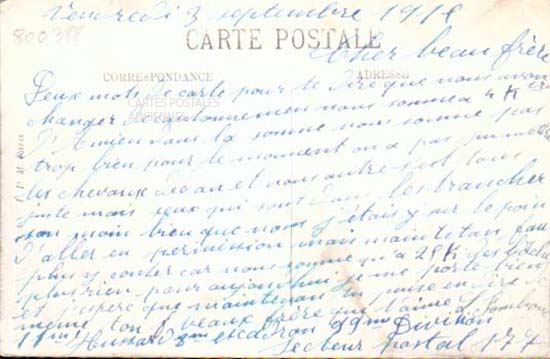 Vendredi 3 septembre 191
800388
CARTE POSTALE
Cher beau frère
CORRESPONDANCE
ADRESSE
CARTES POSTALES
ANCIENNES
Deux mots de carte pour te dire que nous avons
changer de cantonnement nous somme a 4 K
d'Amien dans la somme nous somme pas
trop bien pour le moment on a pas pu mettre
les chevaux dedan et nous autre s'est tous
juste mais seux qui sont dans les trancher
son main bien que nous j'étais sur le poin
d'aller en permission mais maintetan faut
plus y conter car nous somme qu'a 25 K des
plus rien pour aujourdhui je me porte bien
et j'espere que maintenan
meme ton beaux frère que t'aime
11me Hussard 3me escadron 99me Division
Secteur postal 177